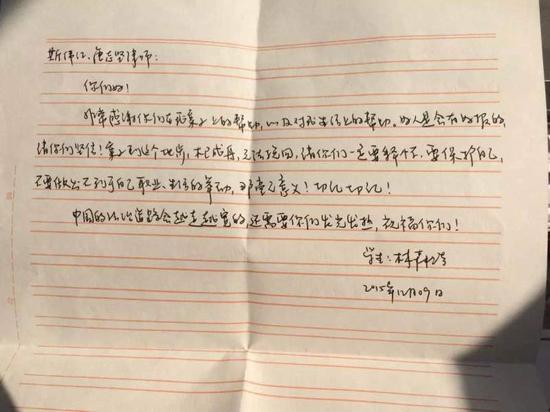 斯伟江、唐志坚律师：
你们好！
非常感谢你们在我案子上的帮助，以及对我生活上的帮助。好人是会有好报的，
请你们坚信！案子到这个地步，木已成舟，无法挽回，请你们一定要释怀，要保护自己，
不要做出不利于自己职业、生活的举动，那毫无意义！切记切记！
中国的法治道路会越走越宽的，还需要你们发光发热，祝福你们！
学生：林森浩
2015年12月09日